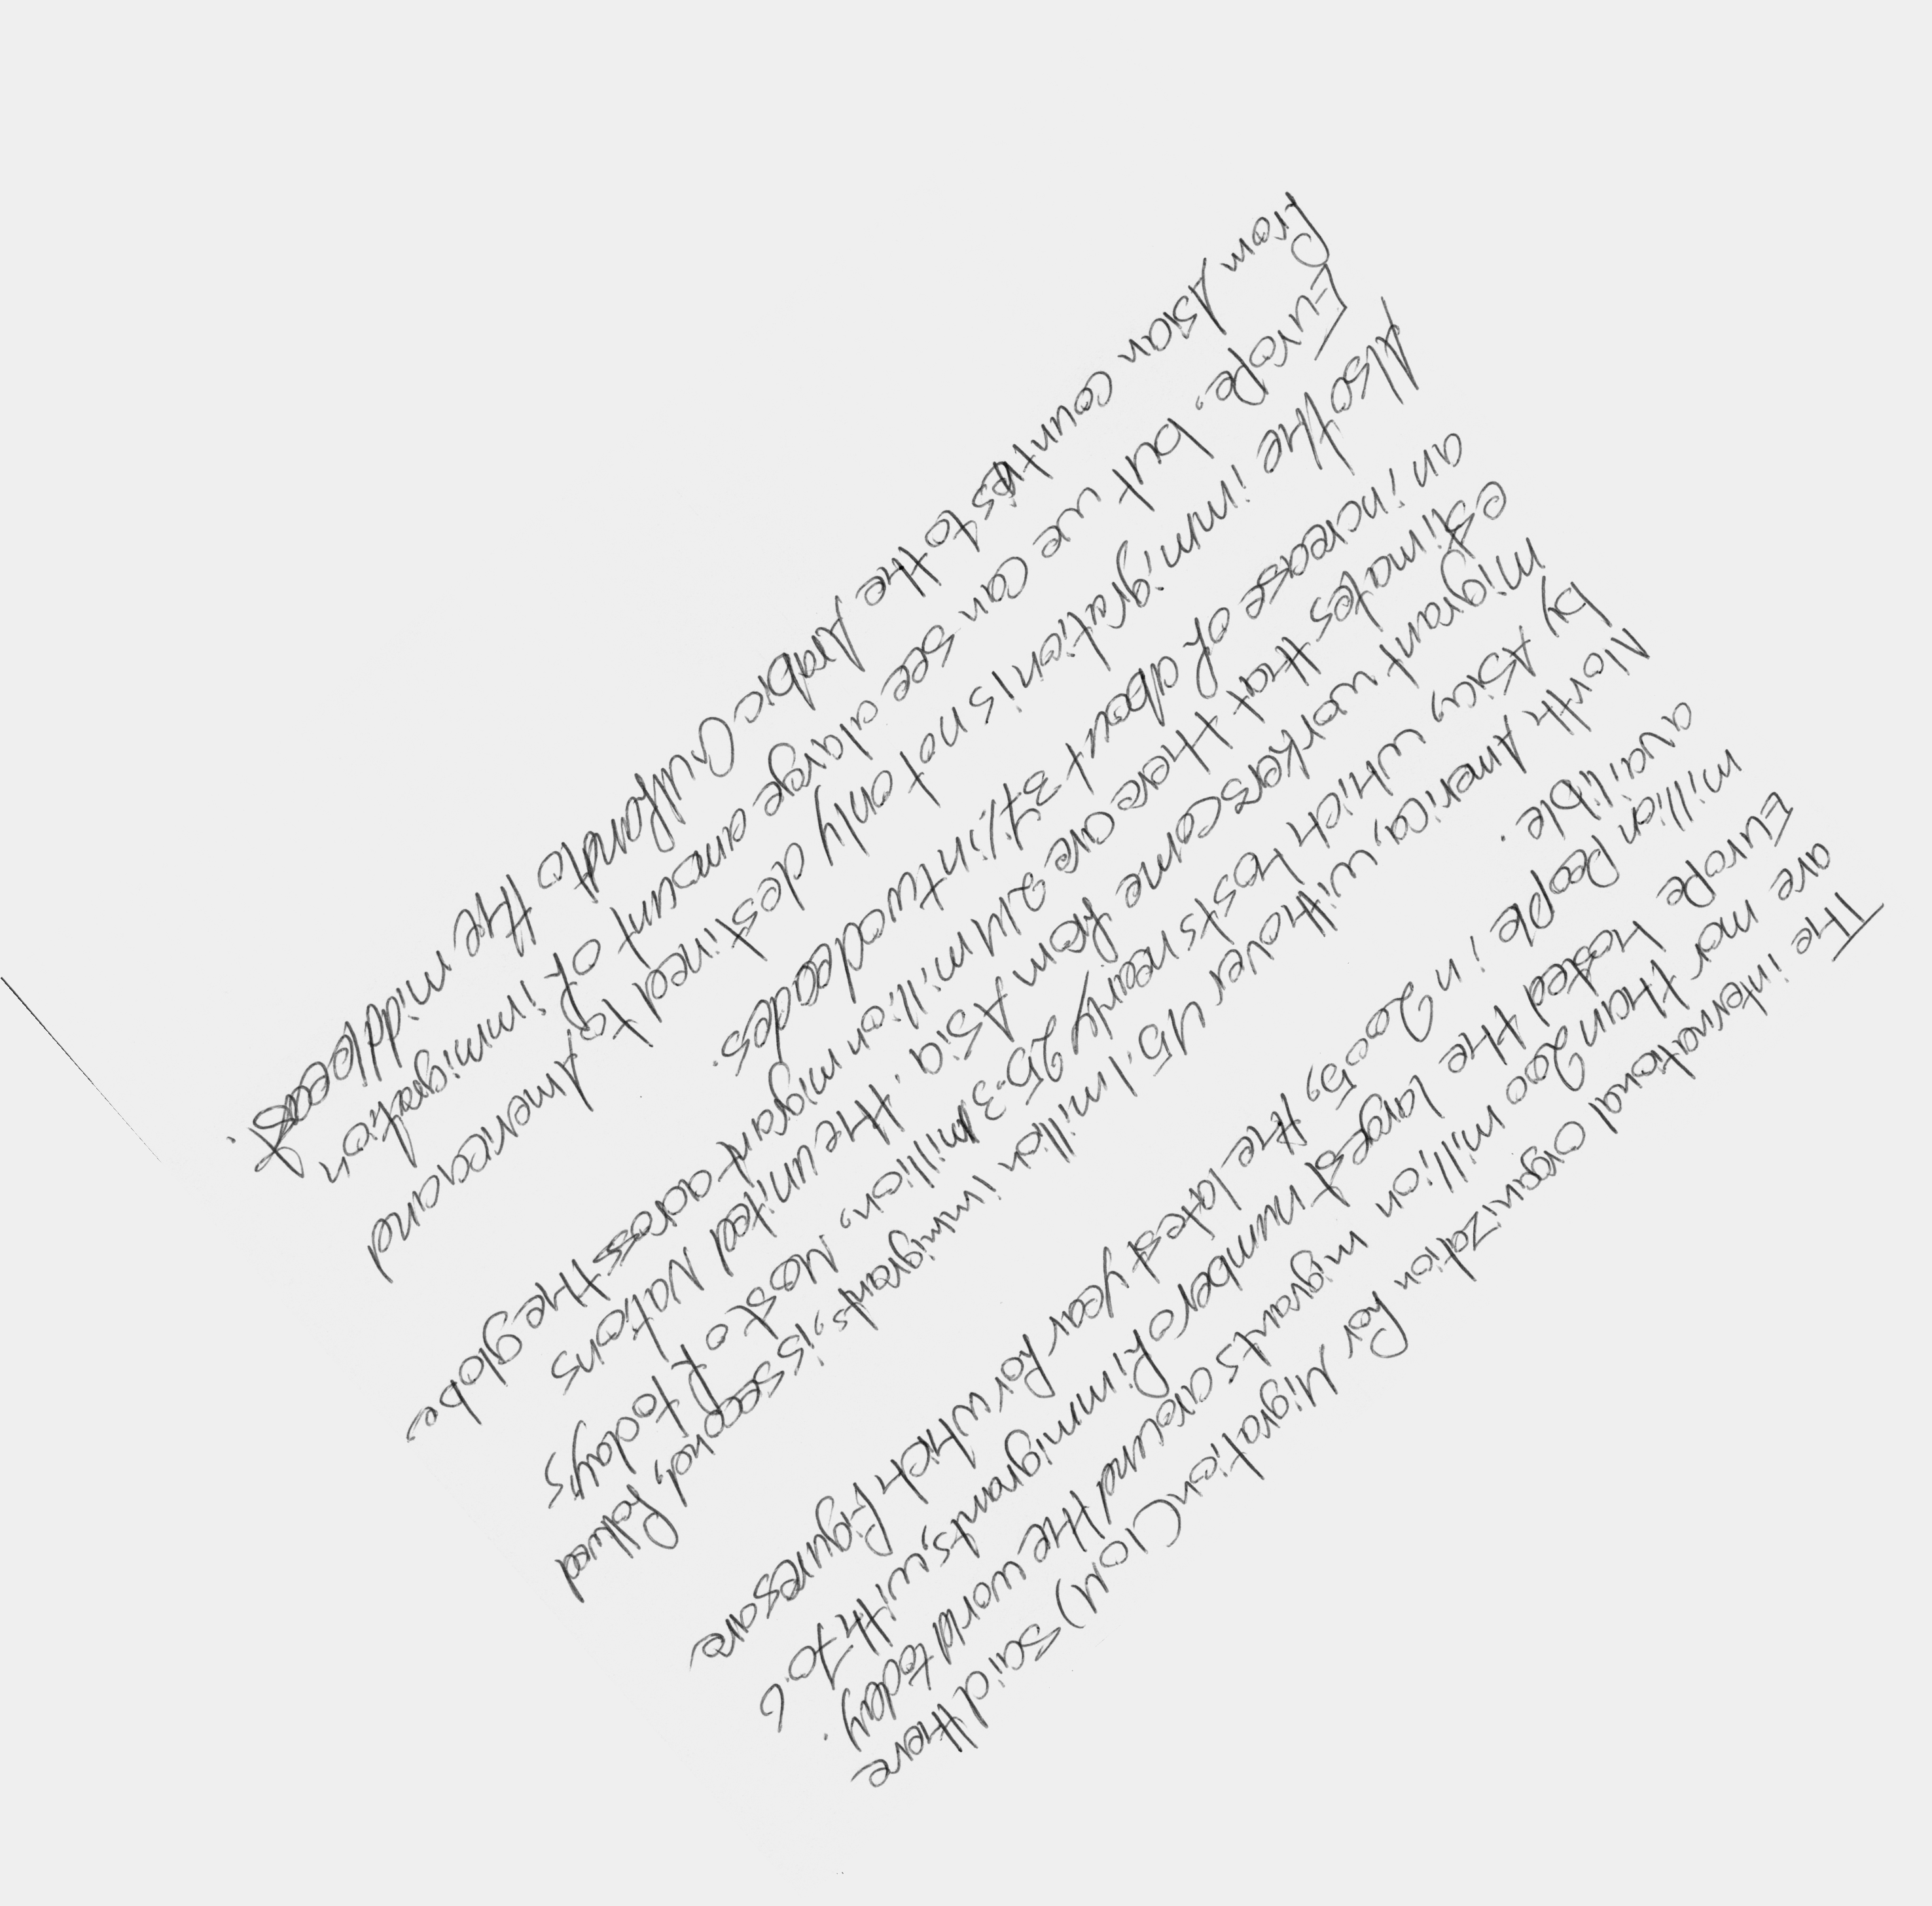 The international organization for Migration (IOM) said there
are mor than 200 million migrants around the world today.
Europe hosted the largest number of immigrants, with 70.6
million people in 2005, the latest year for which figures are
availible.
North America, with over 45.1 million immigrants, is second, follwed
by Asia, which hosts nearly 25.3 million. Most of today's
migrant workers come from Asia. the united Nations
estimates that there are 214 million migrant across the globe,
an increase of about 37% in two decades.
Also the immigration is not only destined to America and
Europe. but we can see a large amount of immigration
from Asian countries to the Arabic Gulf and to the middle east.